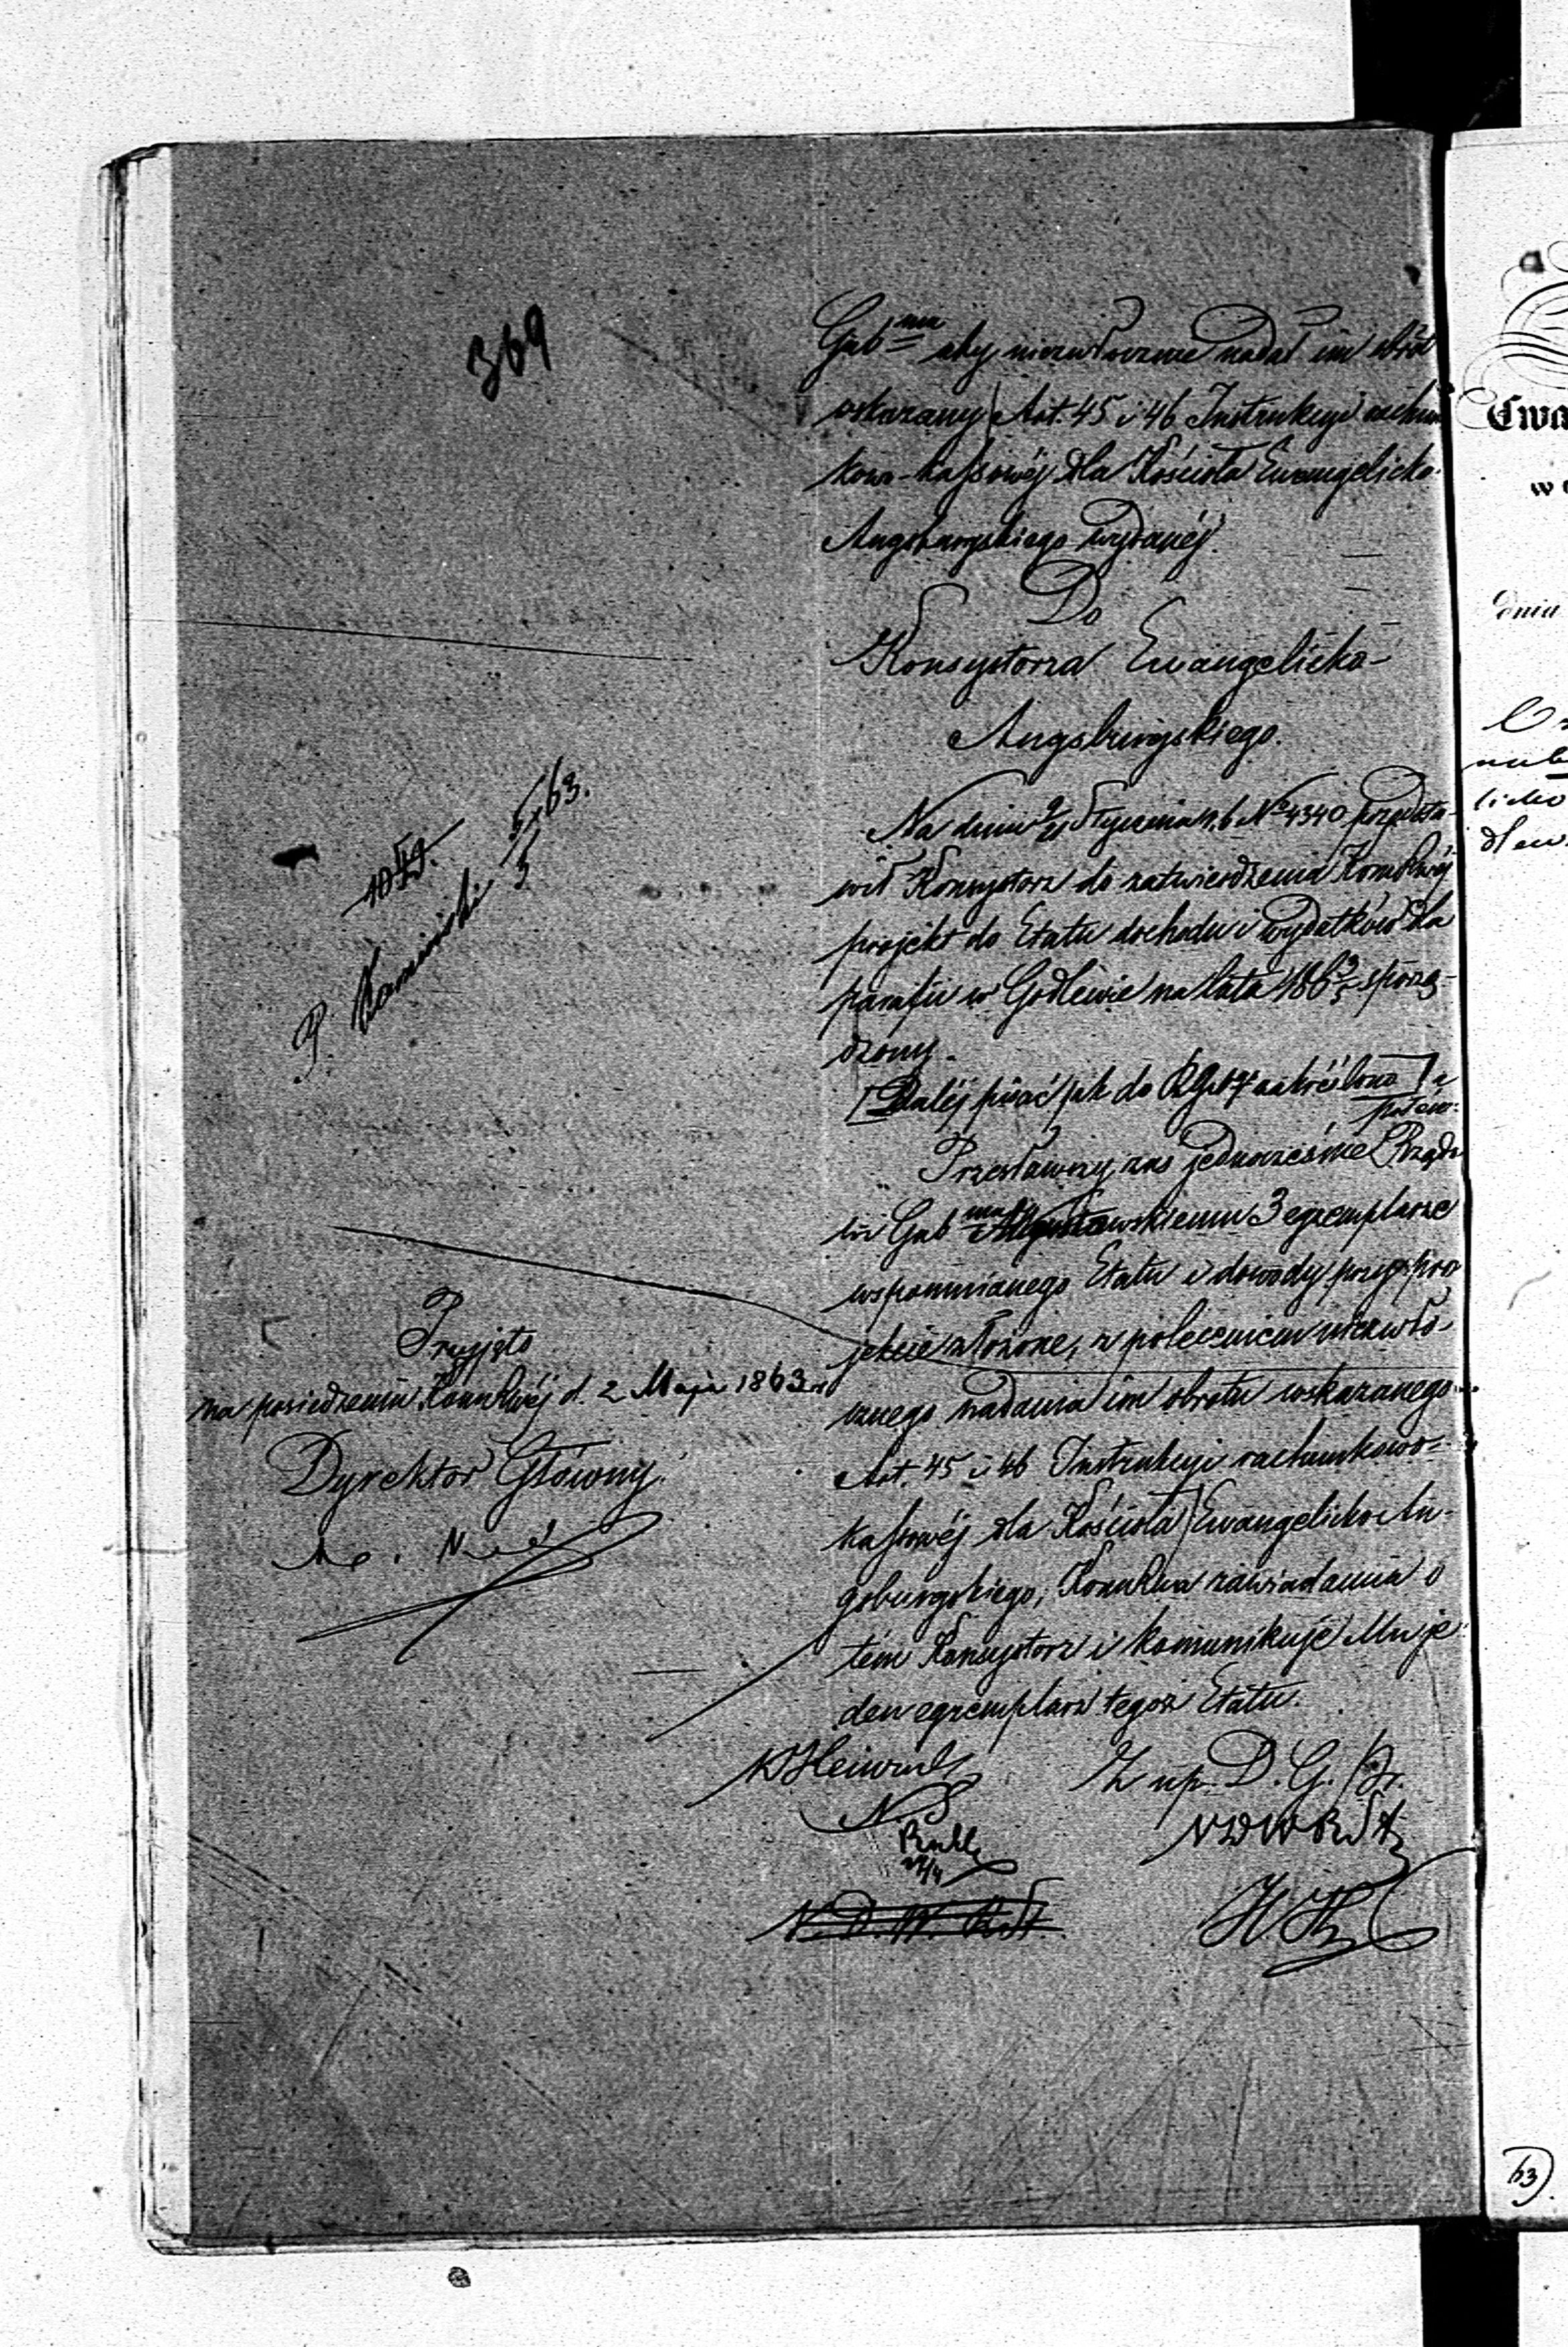 369
Gub ma aby niezwłocznie nadał im obrót
wskazany Art. 45 i 46 Instrukcyi rachun
kowo-kassowéj dla Kościoła Ewangelicko-
Augsburgskiego wydanéj.
Do
Konsystorza Ewangelicko-
Augsburgskiego.
Na dniu 9/21 Stycznia r. b. № 4340 przedsta-
wił Konsystorz do zatwierdzenia
projekt do Etatu dochodu i wydatków dla
parafii w Godlewie na lata 186 3/5 sporzą-
dzony.
Daléj pisać jak do zakréślono a
potém:
Przesławszy zaś jednocześnie Rządo
wi Gub mu Augustowskiemu 3 egzemplarze
wspomnianego Etatu i dowody przy pro
jekcie złożone, z poleceniem niezwło-
cznego nadania im obrotu wskazanego
Art. 45 i 46 Instrukcyi rachunkowo-
kassowéj dla Kościoła Ewangelicko Au-
gsburgskiego, zawiadamia o
tém Konsystorz i komunikuje Mu je-
den egzemplarz tegoż Etatu.
P. Kamiński 5/5 63.
Przyjęto
na posiedzeniu d. 2 Maja 1863 r
Dyrektor Główny
Z up. D. G. Pr.
N D W R S t
N. D. W.
Ewa
w
dnia
63